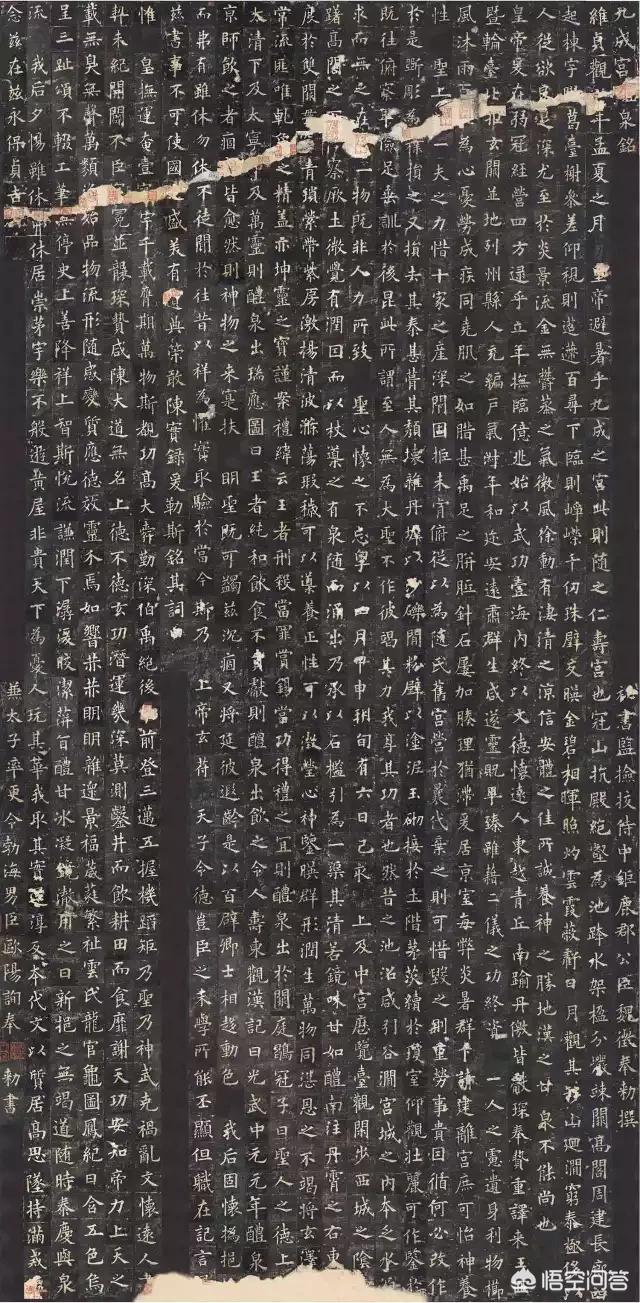 九成宮 泉銘 書監檢校侍中鉅鹿郡公臣魏徵奉勅撰
維貞觀 年孟夏之月 皇帝避暑乎九成之宮此則隨之仁壽宮也冠山抗殿絕壑為池跨水架楹分巖竦闕高閣周建長廊四
起棟宇 葛臺榭參差仰視則迢遰百尋下臨則崢嶸千仞珠璧交暎金碧相暉照灼雲霞蔽虧日月觀其移山迴澗窮泰極侈以
人從欲良足深尤至於炎景流金無鬱蒸之氣微風徐動有淒清之涼信安體之佳所誠養神之勝地漢之甘泉不能尚也
皇帝爰在弱冠經營四方逮乎立年撫臨億兆始以武功壹海內終以文德懷遠人東越青丘南踰丹徼皆獻琛奉贄重譯來王西
暨輪臺北拒玄闕並地列州縣人充編戶氣淑年和迩安遠肅群生咸遂靈貺畢臻雖藉二儀之功終資一人之慮遺身利物櫛
風沐雨百 為心憂勞成疾同堯肌之如腊甚禹足之胼胝針石屢加腠理猶滯爰居京室每弊炎暑群下請建離宮庶可怡神養
性 聖上 一夫之力惜十家之產深閉固拒未肯俯從以為隨氏舊宮營於曩代棄之則可惜毀之則重勞事貴因循何必改作
於是斲彫為 損之又損去其泰甚葺其頹壞雜丹墀以沙礫間粉壁以塗泥玉砌接於土階茅茨續於瓊室仰觀壯麗可作鑒於
既往俯察卑儉足垂訓於後昆此所謂至人無為大聖不作彼竭其力我享其功者也然昔之池沼咸引谷澗宮城之內本乏水源
求而無之在 一物既非人力所致 聖心懷之不忘粵以四月甲申朔旬有六日己亥 上及中宮歷覽臺觀閑步西城之陰
躇高閣之 察厥土微覺有潤因而以杖導之有泉隨而涌出乃承以石檻引為一渠其清若鏡味甘如醴南注丹霄之右東
度於雙闕 青瑣縈帶紫房激揚清波滌蕩瑕穢可以導養正性可以澂瑩心神鑒暎群形潤生萬物同湛恩之不竭將玄澤
常流匪唯乾象之精蓋亦坤靈之寶謹案禮緯云王者刑殺當罪賞錫當功得禮之宜則醴泉出於闕庭鶡冠子曰聖人之德上
太清下及太寧 及萬靈則醴泉出瑞應圖曰王者純和飲食不貢獻則醴泉出飲之令人壽東觀漢記曰光武中元元年醴泉
京師飲之者痼 皆愈然則神物之來寔扶 明聖既可蠲茲沉痼又將延彼遐齡是以百辟卿士相趨動色 我后固懷撝挹
而弗有雖休勿休不徒聞於往昔以祥為懼實取驗於當今斯乃 上帝玄符 天子令德豈臣之末學所能丕顯但職在記言
茲書事不可使國之盛美有遺典策敢陳實錄爰勒斯銘其詞曰
惟 皇撫運奄壹 宇千載膺期萬物斯覩功高大舜勤深伯禹絕後 前登三邁五握機蹈矩乃聖乃神武克禍亂文懷遠人書
契未紀開闢不臣 冕並襲琛贄咸陳大道無名上德不德玄功潛運幾深莫測鑿井而飲耕田而食靡謝天功安知帝力上天之
載無臭無聲萬類 始品物流形隨感變質應德效靈不焉如響赫赫明明雜遝景福葳蕤繁祉雲氏龍官龜圖鳳紀日含五色烏
呈三趾頌不輟工筆無停史上善降祥上智斯悅流謙潤下潺湲皎潔蓱旨醴甘冰凝鏡澈用之日新挹之無竭道隨時泰慶與泉
流 我后夕惕雖休弗休居崇茅宇樂不般遊黃屋非貴天下為憂人玩其華我取其實還淳反本代文以質居高思墜持滿戒
念茲在茲永保貞吉 兼太子率更令勃海男臣歐陽詢奉 勅書
悟空问答